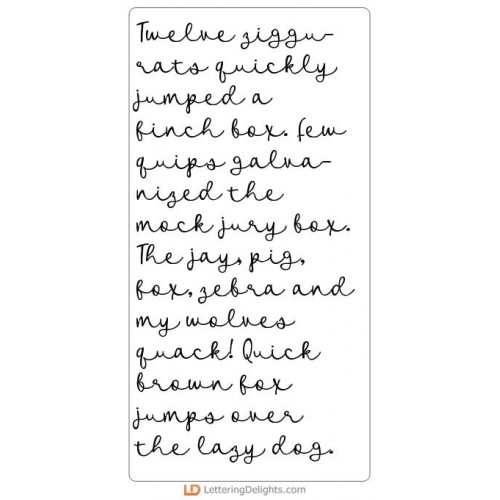 Twelve ziggu-
rats quickly
jumped a
finch box. few
quips galva-
nized the
mock jury box.
The jay, pig,
fox, zebra and
my wolves
quack! Quick
brown fox
jumps over
the lazy dog.
LD LetteringDelights.com